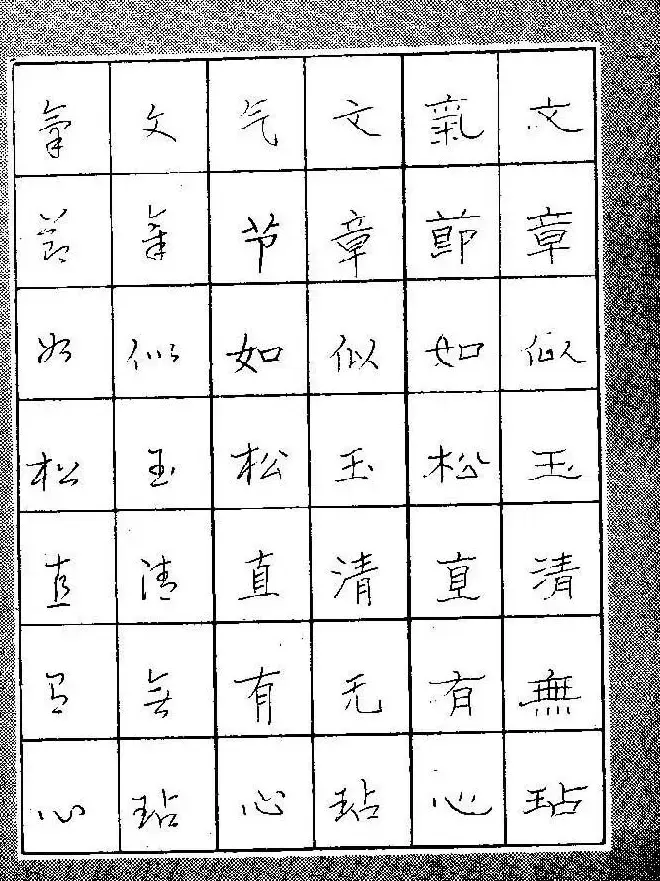 文章似玉清無玷
氣節如松直有心
文章似玉清无玷
气节如松直有心
文章似玉清無玷
氣節如松直有心